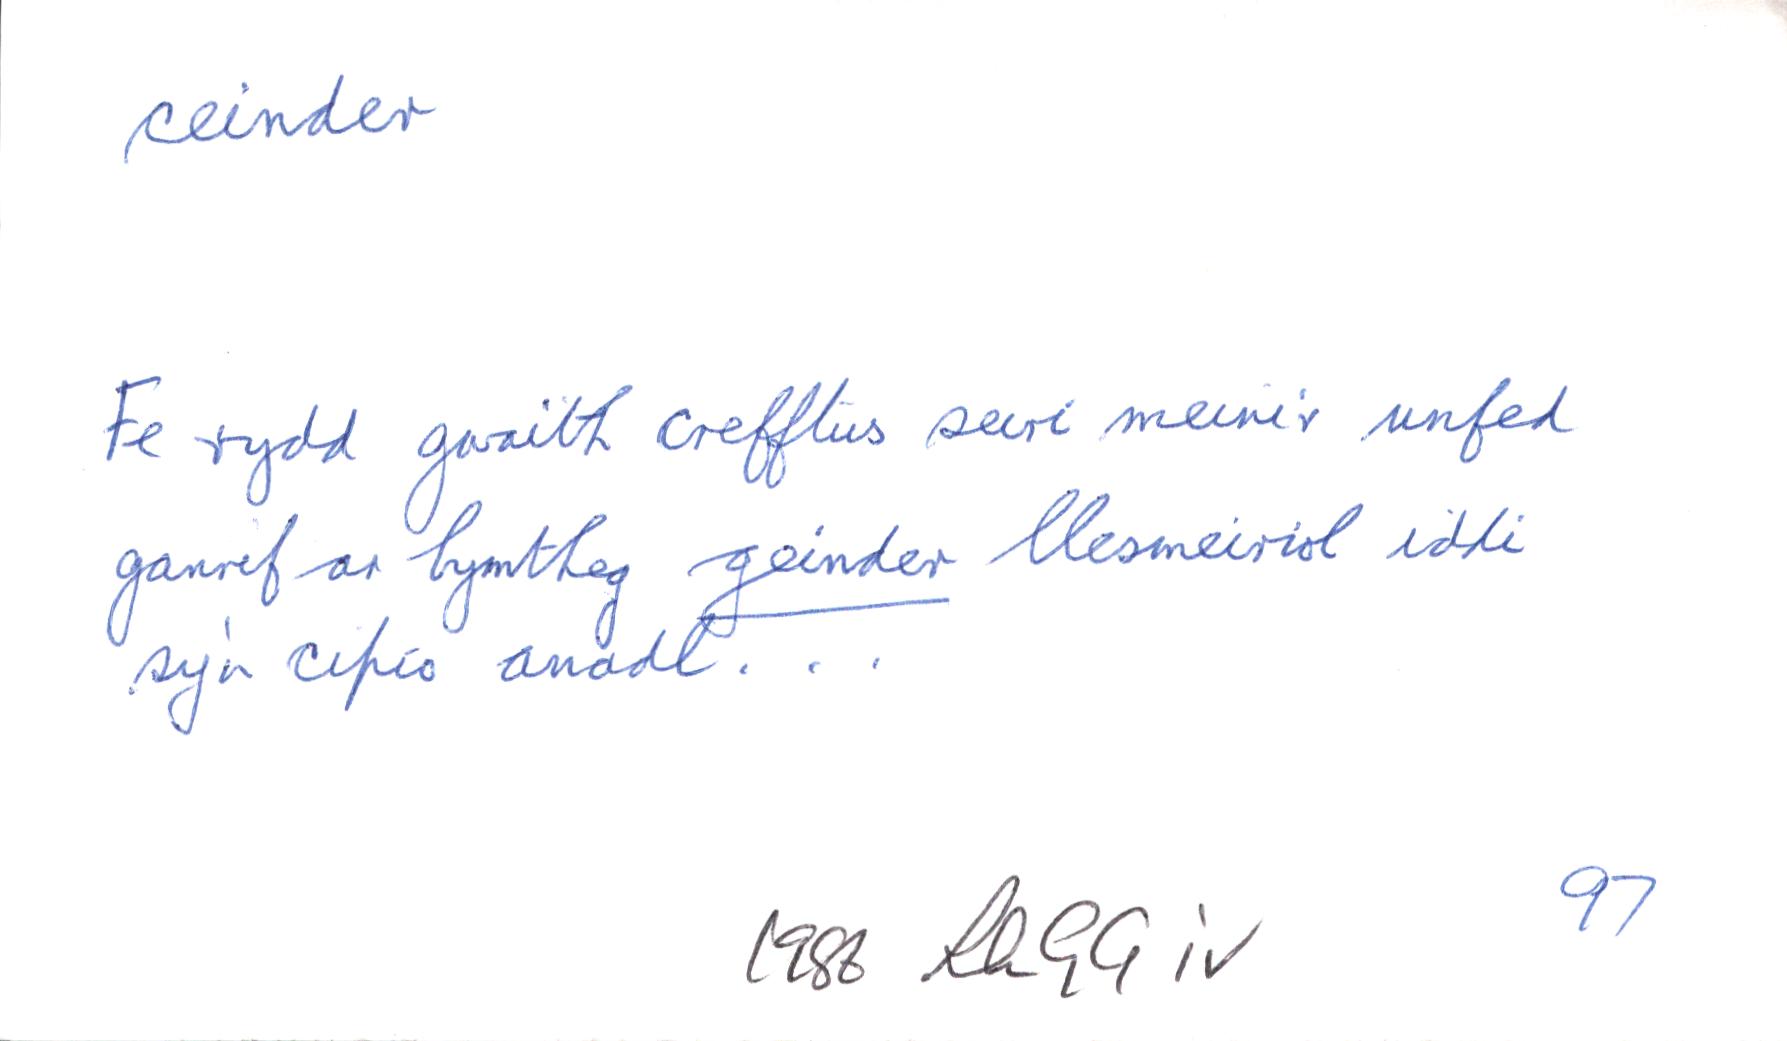 ceinder
Fe rydd gwaith crefftus seiri meinir unfed
ganrif ar bymtheg geinder llesmeiriol iddi
sy'n cipio anadl. . .
97
1986 LlGG iv